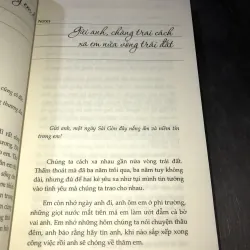 Gửi anh, chàng trai cách
xa em nửa vòng trái đất
Gửi anh, một ngày Sài Gòn đầy nắng ấm và niềm tin
trong em!
Chúng ta cách xa nhau gần nửa vòng trái đất.
Thấm thoát mà đã ba năm trôi qua, ba năm tuy không
dài, nhưng đủ để hai kẻ yêu xa như tụi mình tin tưởng
vào tình yêu mà chúng ta trao cho nhau.
Em còn nhớ ngày anh đi, anh ôm em ở phi trường,
những giọt nước mắt trên má em làm ướt đẫm cả bờ
vai anh. Em nhớ những hôm chúng ta nói chuyện thâu
đêm, anh bảo rằng hãy tin anh, khi nào sắp xếp xong
công việc rồi anh sẽ chóng về thăm em.